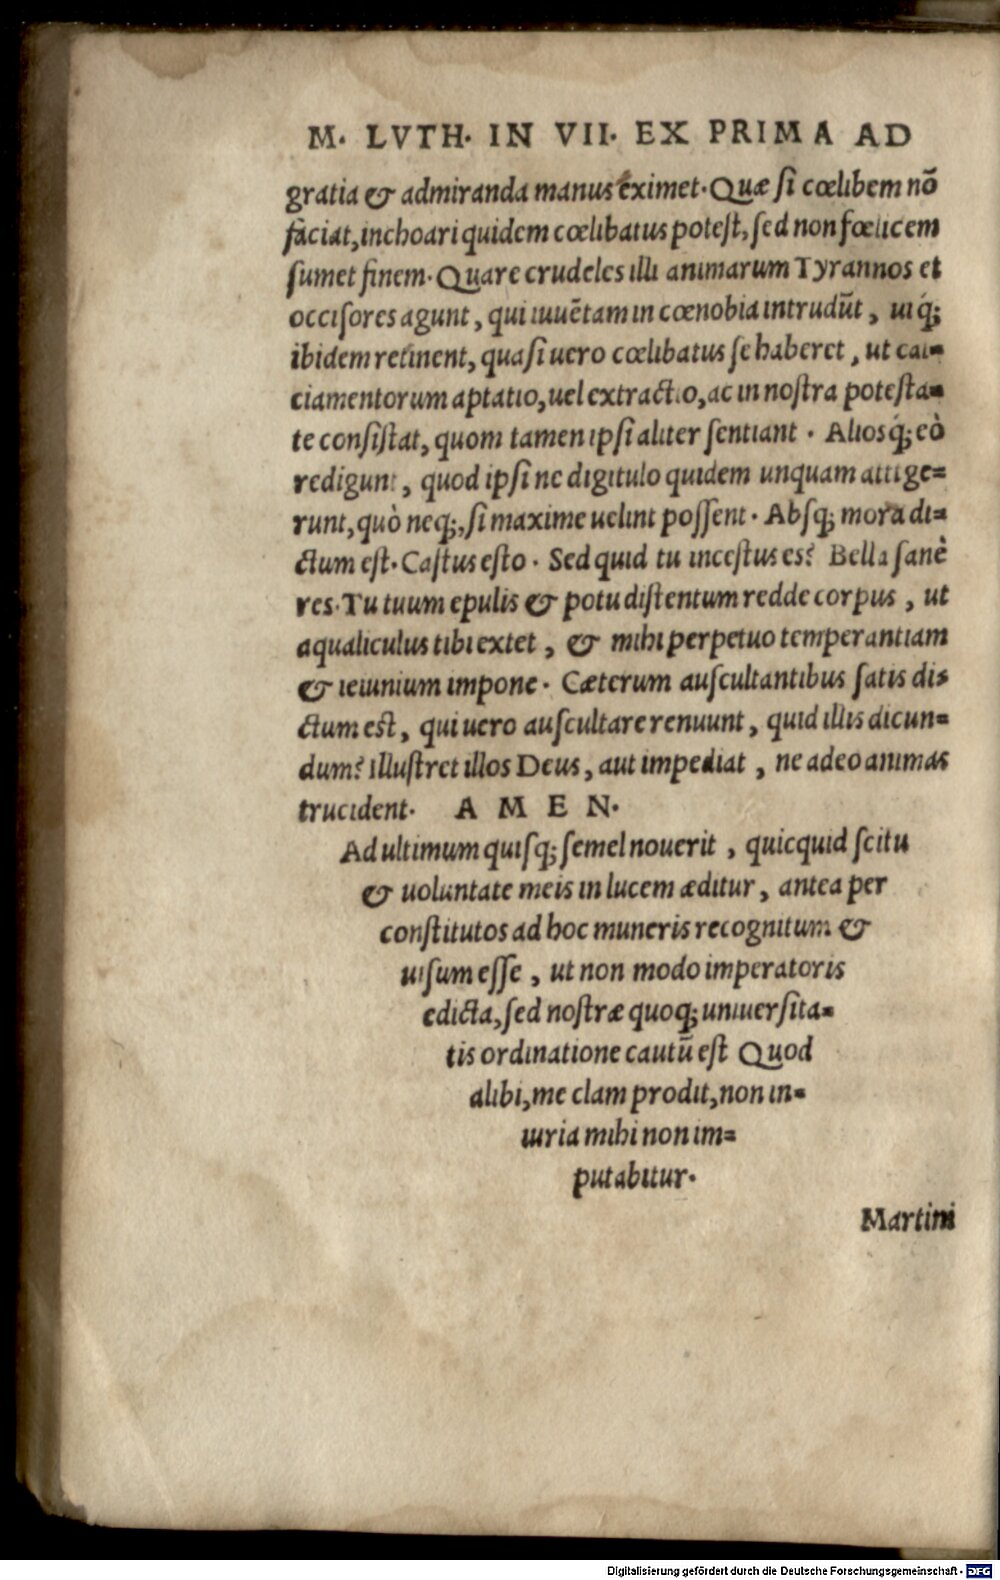 M. LVTH. IN VII. EX PRIMA AD
gratia & admiranda manus eximet. Quæ si cœlibem nõ
faciat, inchoari quidem cœlibatus potest, sed non fœlicem
sumet finem. Quare crudeles illi animarum Tyrannos et
occisores agunt, qui iuuẽtam in cœnobia intrudũt, uiq́;
ibidem retinent, quasi uero cœlibatus se haberet, ut cal=
ciamentorum aptatio, uel extractio, ac in nostra potesta=
te consistat, quom tamen ipsi aliter sentiant. Aliosq́; eò
redigunt, quod ipsi ne digitulo quidem unquam attige=
runt, quò neq;, si maxime uelint possent. Absq; mora di=
ctum est. Castus esto. Sed quid tu incestus es? Bella sanè
res. Tu tuum epulis & potu distentum redde corpus, ut
aqualiculus tibi extet, & mihi perpetuo temperantiam
& ieiunium impone. Cæterum auscultantibus satis di=
ctum est, qui uero auscultare renuunt, quid illis dicun=
dum? illustret illos Deus, aut impediat, ne adeo animas
trucident. A M E N.
Ad ultimum quisq; semel nouerit, quicquid scitu
& uoluntate meis in lucem æditur, antea per
constitutos ad hoc muneris recognitum &
uisum esse, ut non modo imperatoris
edicta, sed nostræ quoq; uniuersita=
tis ordinatione cautũ est Quod
alibi, me clam prodit, non in=
iuria mihi non im=
putabitur.
Martini
Digitalisierung gefördert durch die Deutsche Forschungsgemeinschaft - DFG